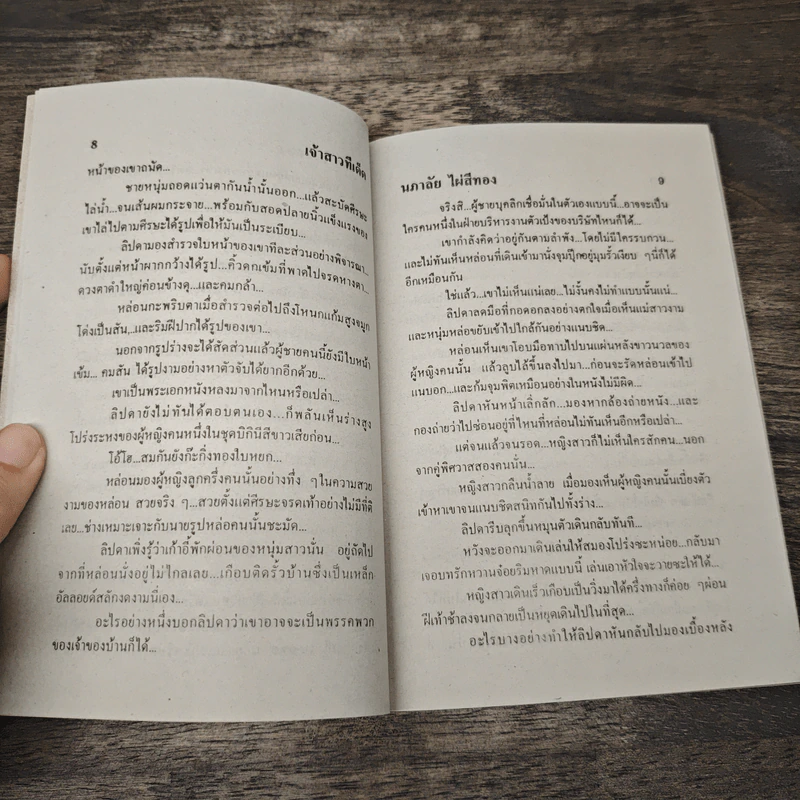 8
เจ้าสาวทีเด็ด
หน้าของเขาถนัด...
ชายหนุ่มถอดแว่นตากันน้ำนั้นออก...แล้วสะบัดศีรษะ
ไล่น้ำ...จนเส้นผมกระจาย...พร้อมกับสอดปลายนิ้วแข็งแรงของ
เขาไล่ไปตามศีรษะได้รูปเพื่อให้มันเป็นระเบียบ...
ลิปดามองสำรวจใบหน้าของเขาทีละส่วนอย่างพิจารณา...
นับตั้งแต่หน้าผากกว้างได้รูป...คิ้วดกเข้มที่พาดไปจรดหางตา...
ดวงตาดำใหญ่ค่อนข้างดุ...และคมกล้า...
หล่อนกะพริบตาเมื่อสำรวจต่อไปถึงโหนกแก้มสูงจมูก
โด่งเป็นสัน,..และริมฝีปากได้รูปของเขา...
นอกจากรูปร่างจะได้สัดส่วนแล้วผู้ชายคนนี้ยังมีใบหน้า
เข้ม... คมสัน ได้รูปงามอย่างหาตัวจับได้ยากอีกด้วย...
เขาเป็นพระเอกหนังหลงมาจากไหนหรือเปล่า...
ลิปดายังไม่ทันได้ตอบตนเอง...ก็พลันเห็นร่างสูง
โปร่งระหงของผู้หญิงคนหนึ่งในชุดบิกินีสีขาวเสียก่อน...
โอ้โฮ...สมกันยังก๊ะกิ่งทองใบหยก...
หล่อนมองผู้หญิงลูกครึ่งคนนั้นอย่างทึ่ง ๆในความสวย
งามของหล่อน สวยจริง ๆ...สวยตั้งแต่ศีรษะจรดเท้าอย่างไม่มีที่ติ
เลย...ช่างเหมาะเจาะกับนายรูปหล่อคนนั้นชะมัด...
ลิปดาเพิ่งรู้ว่าเก้าอี้พักผ่อนของหนุ่มสาวนั่น อยู่ถัดไป
จากที่หล่อนนั่งอยู่ไม่ไกลเลย...เกือบติดรั้วบ้านซึ่งเป็นเหล็ก
อัลลอยด์สลักงดงามนี่เอง...
อะไรอย่างหนึ่งบอกลิปดาว่าเขาอาจจะเป็นพรรคพวก
ของเจ้าของบ้านก็ได้...
นภาลัย ไผ่สีทอง
9
จริงสิ...ผู้ชายบุคลิกเชื่อมั่นในตัวเองแบบนี้...อาจจะเป็น
ใครคนหนึ่งในฝ่ายบริหารงานตัวเป้งของบริษัทไหนก็ได้...
เขากำลังคิดว่าอยู่กันตามลำพัง...โดยไม่มีใครรบกวน...
และไม่ทันเห็นหล่อนที่เดินเข้ามานั่งจุมปุ๊กอยู่มุมรั้วเงียบ ๆนี่ก็ได้
อีกเหมือนกัน
ใช่แล้ว...เขาไม่เห็นแน่เลย...ไม่งั้นคงไม่ทำแบบนั้นแน่...
ลิปดาลดมือที่กอดอกลงอย่างตกใจเมื่อเห็นแม่สาวงาม
และหนุ่มหล่อขยับเข้าไปใกล้กันอย่างแนบชิด...
หล่อนเห็นเขาโอบมือทาบไปบนแผ่นหลังขาวนวลของ
ผู้หญิงคนนั้น แล้วลูบไล้ขึ้นลงไปมา...ก่อนจะรัดหล่อนเข้าไป
แนบอก...และก้มจุมพิตเหมือนอย่างในหนังไม่มีผิด...
ลิปดาหันหน้าเลิ่กลั่ก...มองหากล้องถ่ายหนัง...และ
กองถ่ายว่าไปซ่อนอยู่ที่ไหนที่หล่อนไม่ทันเห็นอีกหรือเปล่า...
แต่จนแล้วจนรอด...หญิงสาวก็ไม่เห็นใครสักคน...นอก
จากคู่พิศวาสสองคนนั่น...
หญิงสาวกลืนน้ำลาย เมื่อมองเห็นผู้หญิงคนนั้นเบี่ยงตัว
เข้าหาเขาจนแนบชิดสนิทกันไปทั้งร่าง...
ลิปดารีบลุกขึ้นหมุนตัวเดินกลับทันที...
หวังจะออกมาเดินเล่นให้สมองโปร่งซะหน่อย...กลับมา
เจอบทรักหวานจ๋อยริมหาดแบบนี้ เล่นเอาหัวใจจะวายซะให้ได้...
หญิงสาวเดินเร็วเกือบเป็นวิ่งมาได้ครึ่งทางก็ค่อย ๆผ่อน
ฝีเท้าช้าลงจนกลายเป็นหยุดเดินไปในที่สุด...
อะไรบางอย่างทำให้ลิปดาหันกลับไปมองเบื้องหลัง